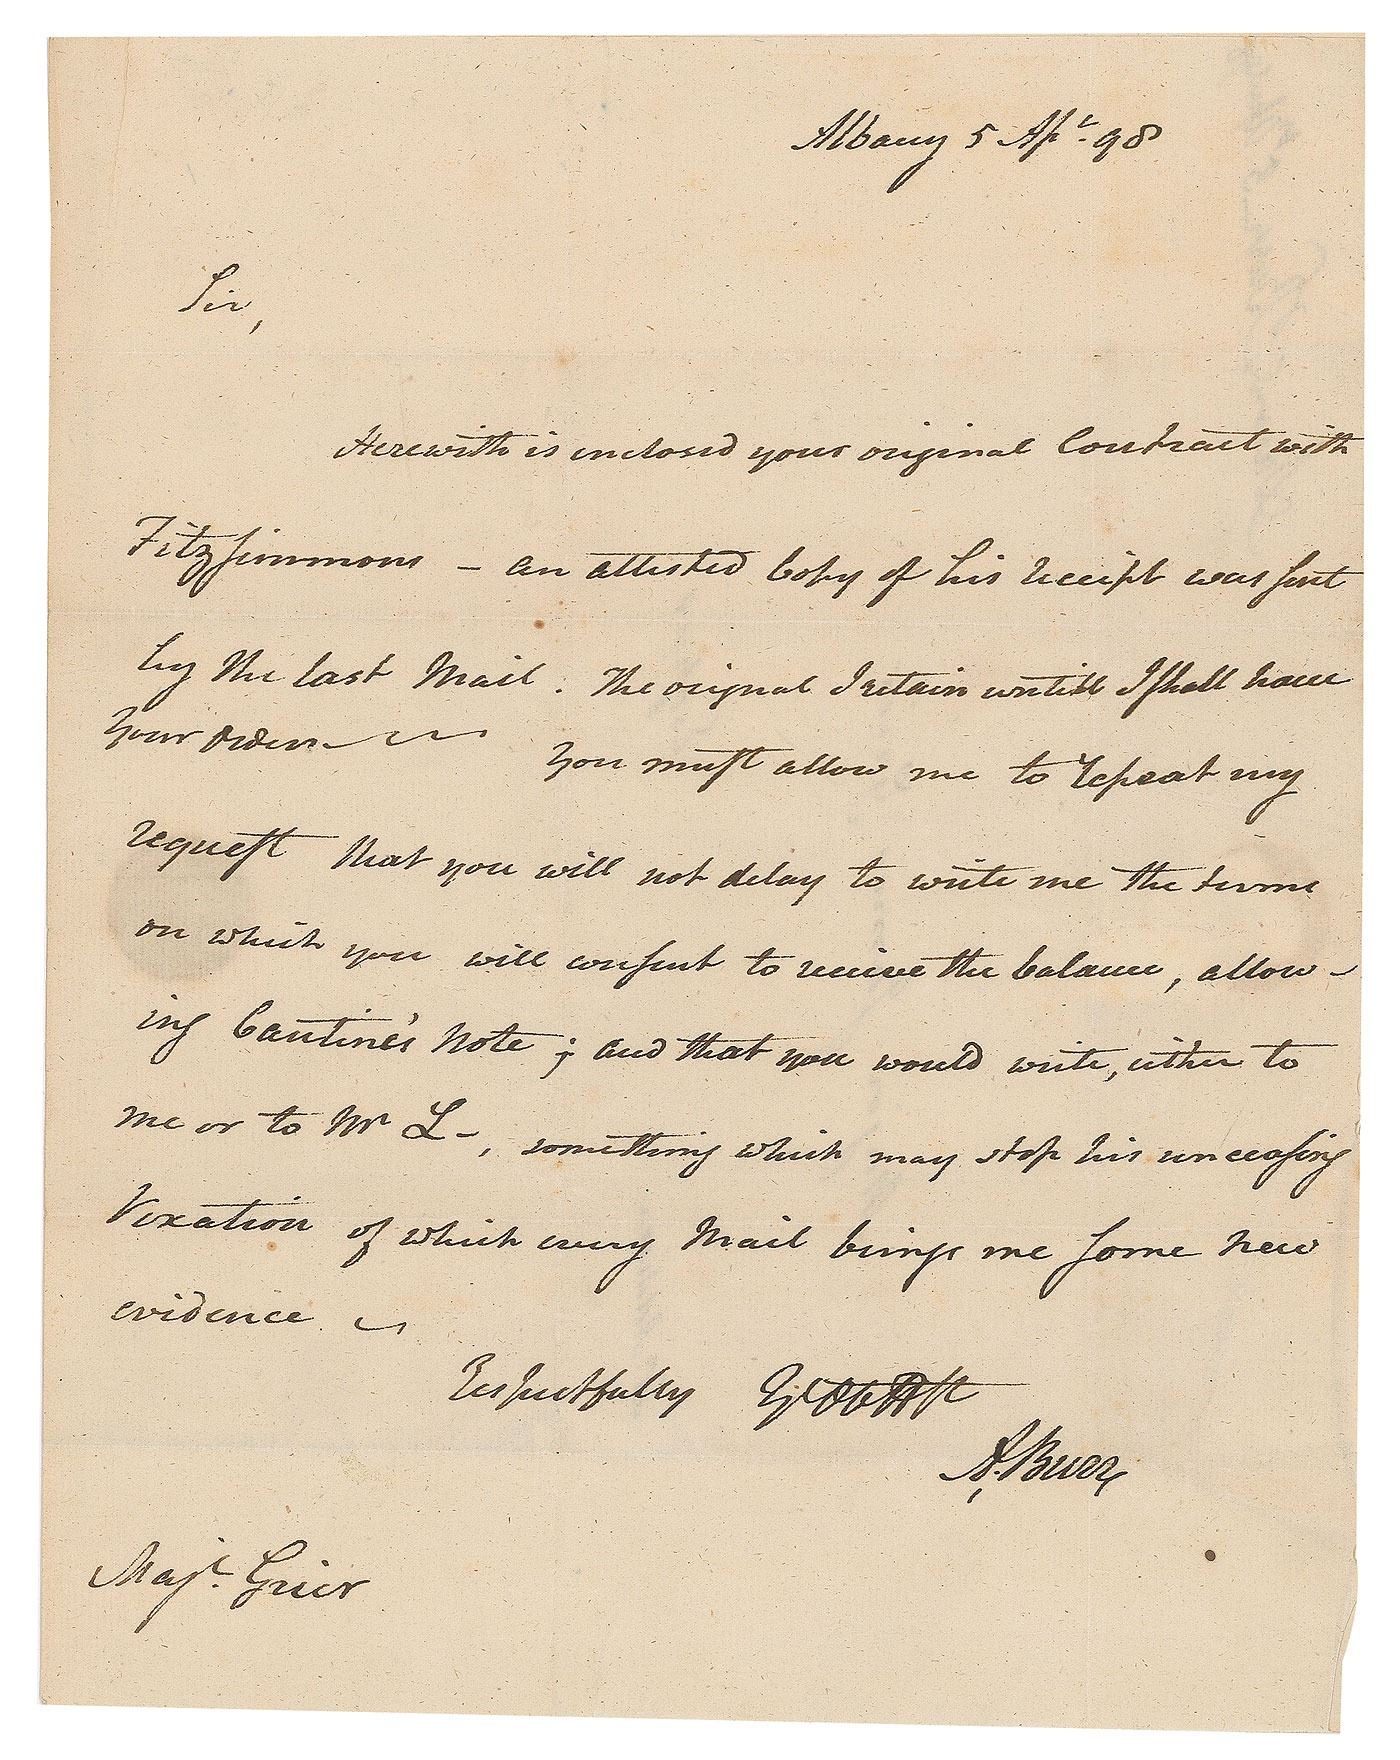 Albany 5 Apr. 98
Sir,
Herewith is enclosed your original Contract with
Fitzsimmons – an attested Copy of his receipt was sent
by the last Mail. The orignal I retain untill I shall have
your orders
You must allow me to repeat my
request that you will not delay to write me the terms
on which you will consent to receive the balance, allow-
ing Cantine's Note; and that you would write, either to
me or to Mr L–, something which may stop his unceasing
Vexation of which every Mail brings me some new
evidence
Respectfully Yr Ob St
A. Burr
Majr. Grier